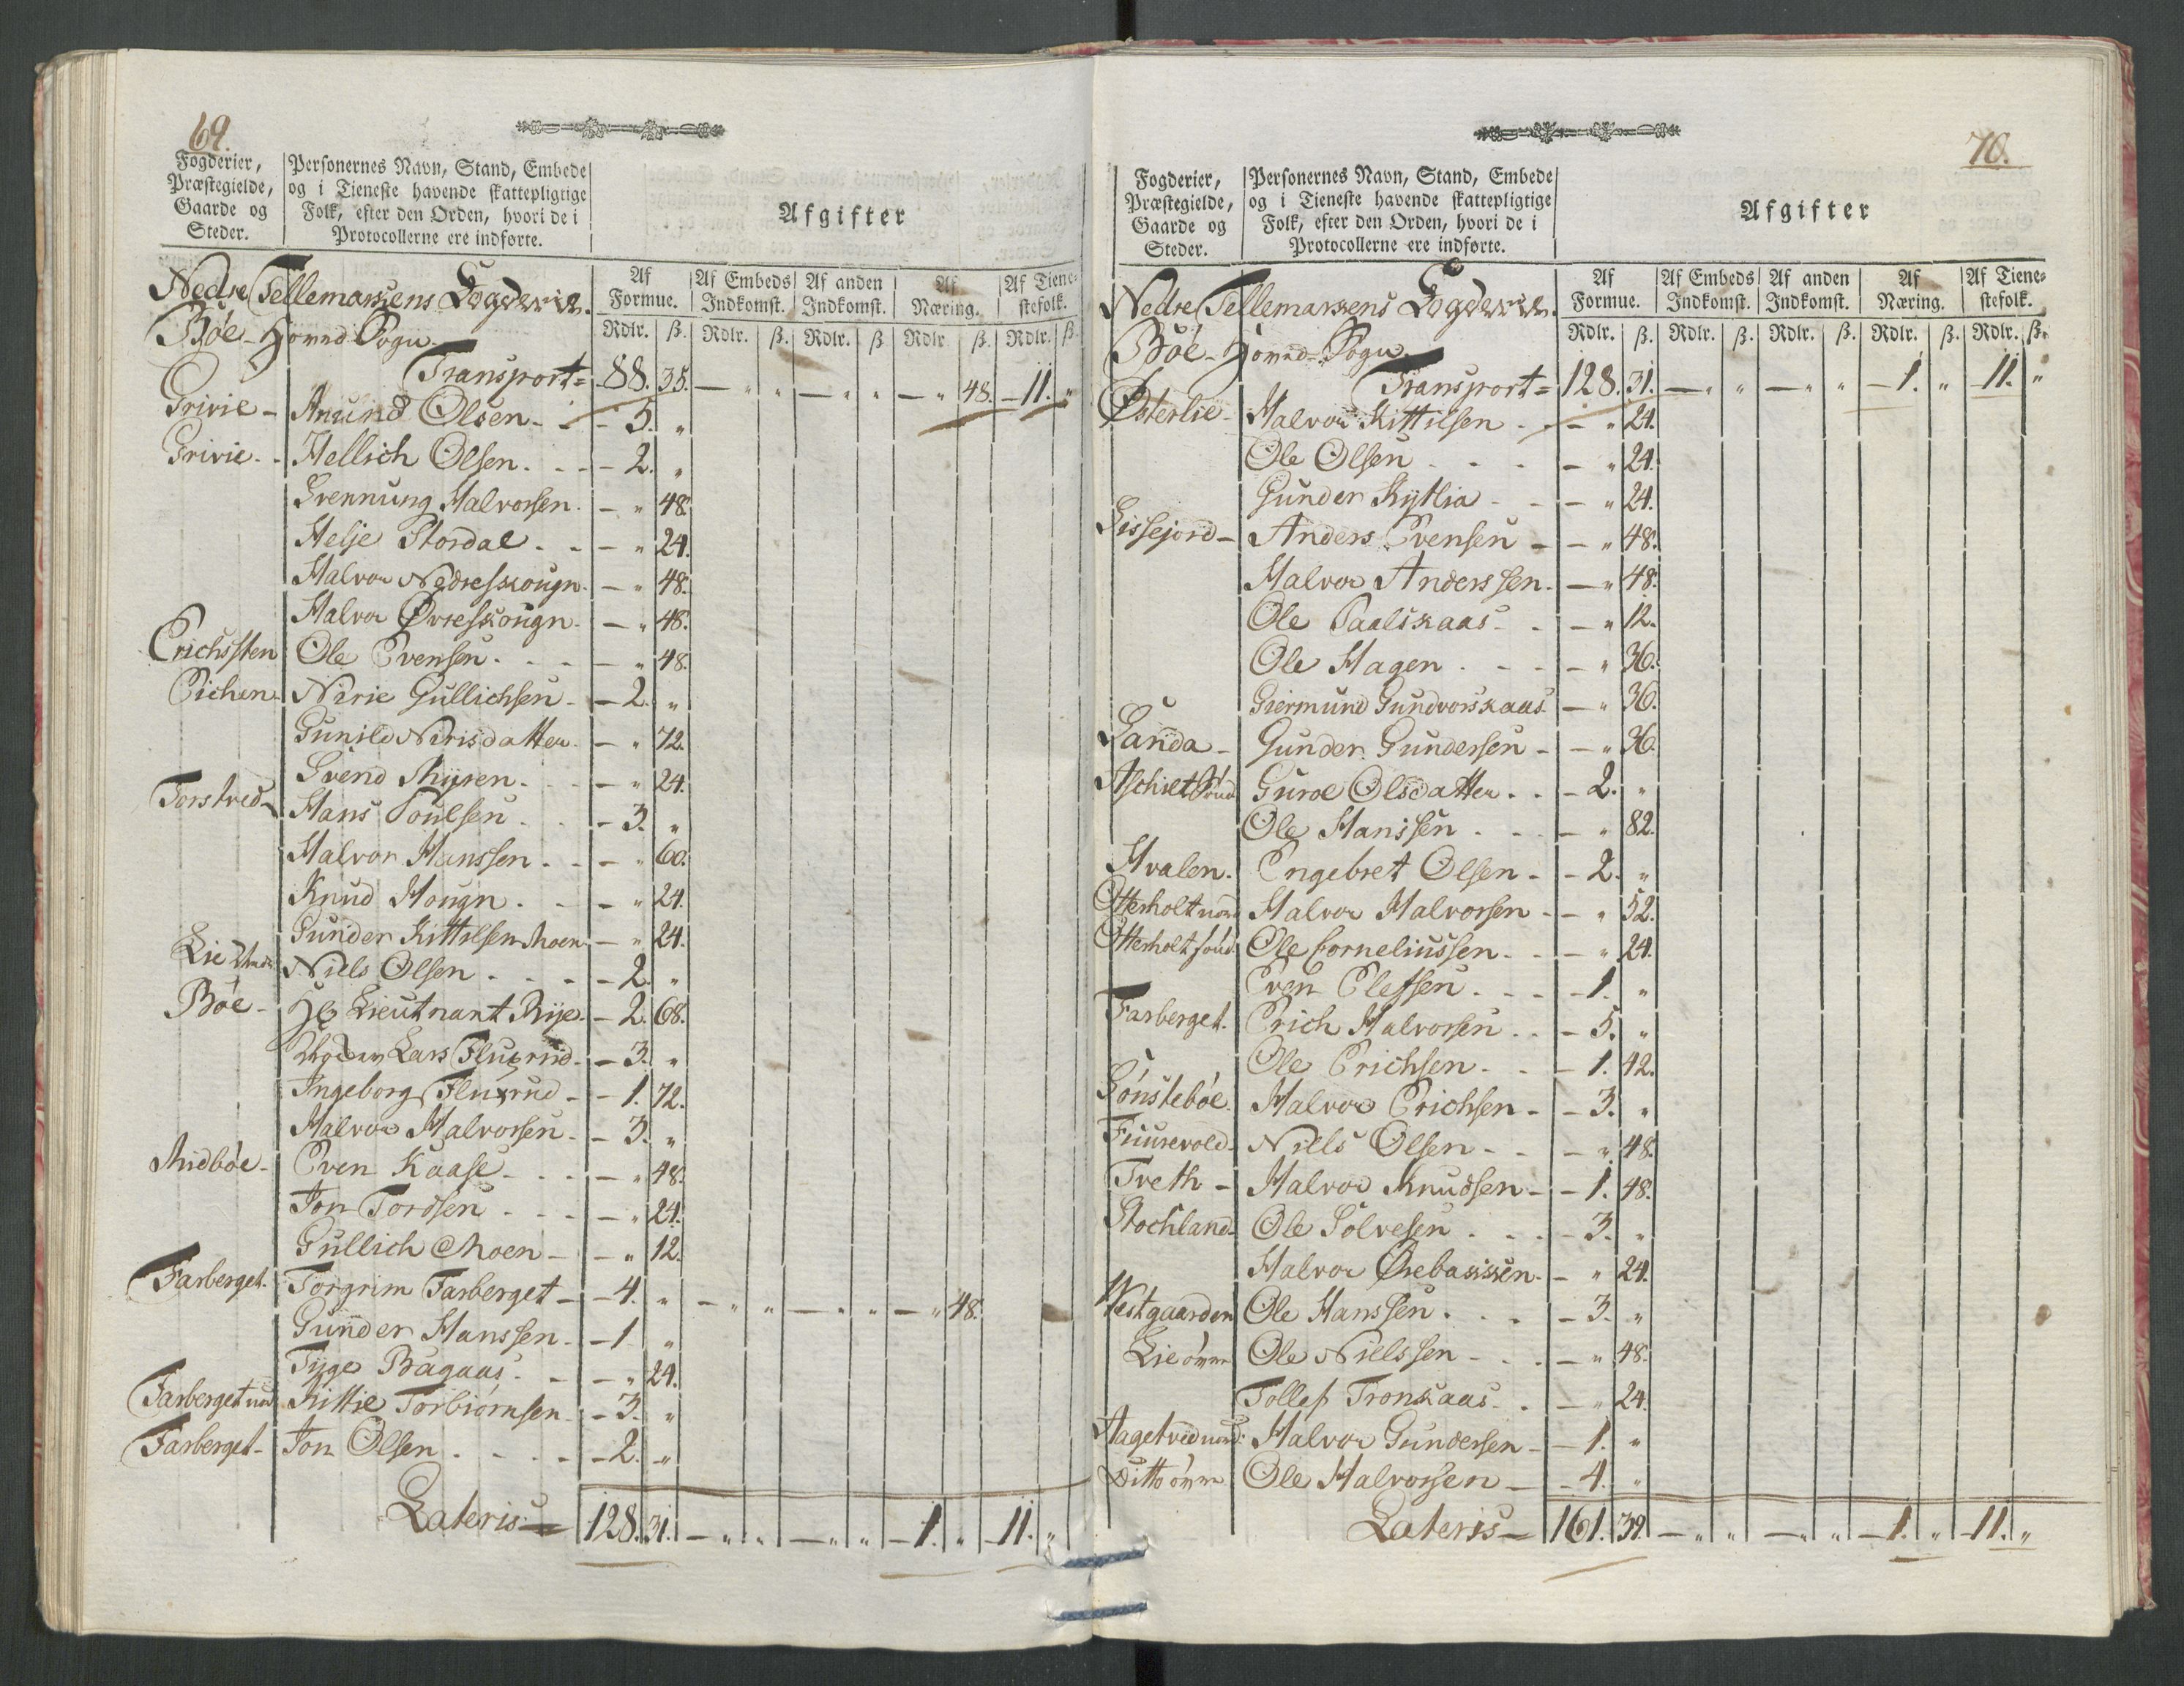 69.
Fogderier, Præstegielde, Gaarde og Steder.
Personernes Navn, Stand, Embede og i Tieneste havende skattepligtige Folk, efter den Orden, hvori de i Protocollerne ere indførte.
Afgifter
Af Formue. Af Embeds Indkomst. Af anden Indkomst. Af Næring. Af Tienestefolk.
Rdlr. ß. Rdlr. ß. Rdlr. ß. Rdlr. ß. Rdlr. ß.
Nedre Tellemarkens Fogderie.
Bøe Hovud Sogn
Transport = 88. 35. — " " — " " — " 48. — 11. "
Grivie - Anund Olsen - - 5. "
Grivie - Hellich Olsen - - 2. "
Svennung Halvorsen - — " 48.
Helje Stordal - - — " 24.
Halvor Nedreskougn - — " 48.
Halvor Øvreskougn - — " 48.
Erichssten Ole Evensen - - — " 48.
Eichen Nirie Gullichsen - — 2. "
Gunild Nirisdatter - — " 72.
Svend Myren - - — " 24.
Torstved - Hans Poulsen - - 3. "
Halvor Hanssen - - — " 60.
Knud Hougn - - — " 24.
Gunder Kittilsen Moen — " 24.
Lie Niels Olsen - - - 2. "
Bøe - Lieutnant Rije - — 2. 68.
Lars Fluxrud - — 3. "
Ingeborg Fluxrud - — 1. 72.
Halvor Halvorsen - — 3. "
Midbøe - Even Kaase - - — " 48.
Jon Tordsen - - - — " 24.
Gullich Moen - — " 12.
Farberget. Torgrim Farberget — — 4. " — " " — " " — " 48.
Gunder Hanssen - — 1 "
Tyge Bagaas - — " 24.
Farberget nord Kittil Torbiørnsen - 3. "
Farberget - Jon Olsen - - - 2. "
Lateris = 128. 31. — " " — " " — 1. " — 11. "
70.
Fogderier, Præstegielde, Gaarde og Steder.
Personernes Navn, Stand, Embede og i Tieneste havende skattepligtige Folk, efter den Orden, hvori de i Protocollerne ere indførte.
Afgifter
Af Formue. Af Embeds Indkomst. Af anden Indkomst. Af Næring. Af Tienestefolk.
Rdlr. ß. Rdlr. ß. Rdlr. ß. Rdlr. ß. Rdlr. ß.
Nedre Tellemarkens Fogderie.
Bøe - Hovud - Sogn.
Transport = 128. 31. — " " — " " — 1. " — 11. "
Østerlie - Halvor Kittilsen - — " 24.
Ole Olsen - - - — " 24.
Gunder Kytlia - - — " 24.
Sissejord — Anders Evensen - — " 48.
Halvor Anderssen - — " 48.
Ole Paalskaas - - — " 12.
Ole Hagen - - - — " 36.
Giermund Gundvorskaas — " 36.
Sanda - Gunder Gundersen - — " 36.
Guroe Olsdatter - - 2. "
Ole Hanssen - - — " 82.
Hvalen. Engebret Olsen - - 2. "
Otterholt nord Halvor Halvorsen - — " 52.
Otterholt sønd. Ole Corneliussen - - — " 24.
Even Elefsen - - - 1. "
Farberget. Erich Halvorsen - - 5. "
Ole Erichsen - - — 1. 42.
Sønstebøe. Halvor Erichsen - - 3. "
Fuurevold - Niels Olsen - - — " 48.
Treth - Halvor Knudsen - — 1. 48.
Stochland - Ole Solvesen - - - 3. "
Halvor Ørebakken - — " 24.
Westgaarden Ole Hanssen - - - 3. "
Lie Ole Nielssen - - — " 48.
Tollef Tronkaas - - — " 24.
Aagetved nord: Halvor Gundersen - — 1. "
Ditto Ole Halvorsen - - 4. "
Lateris = 161. 39. — " " — " " — 1. " — 11. "